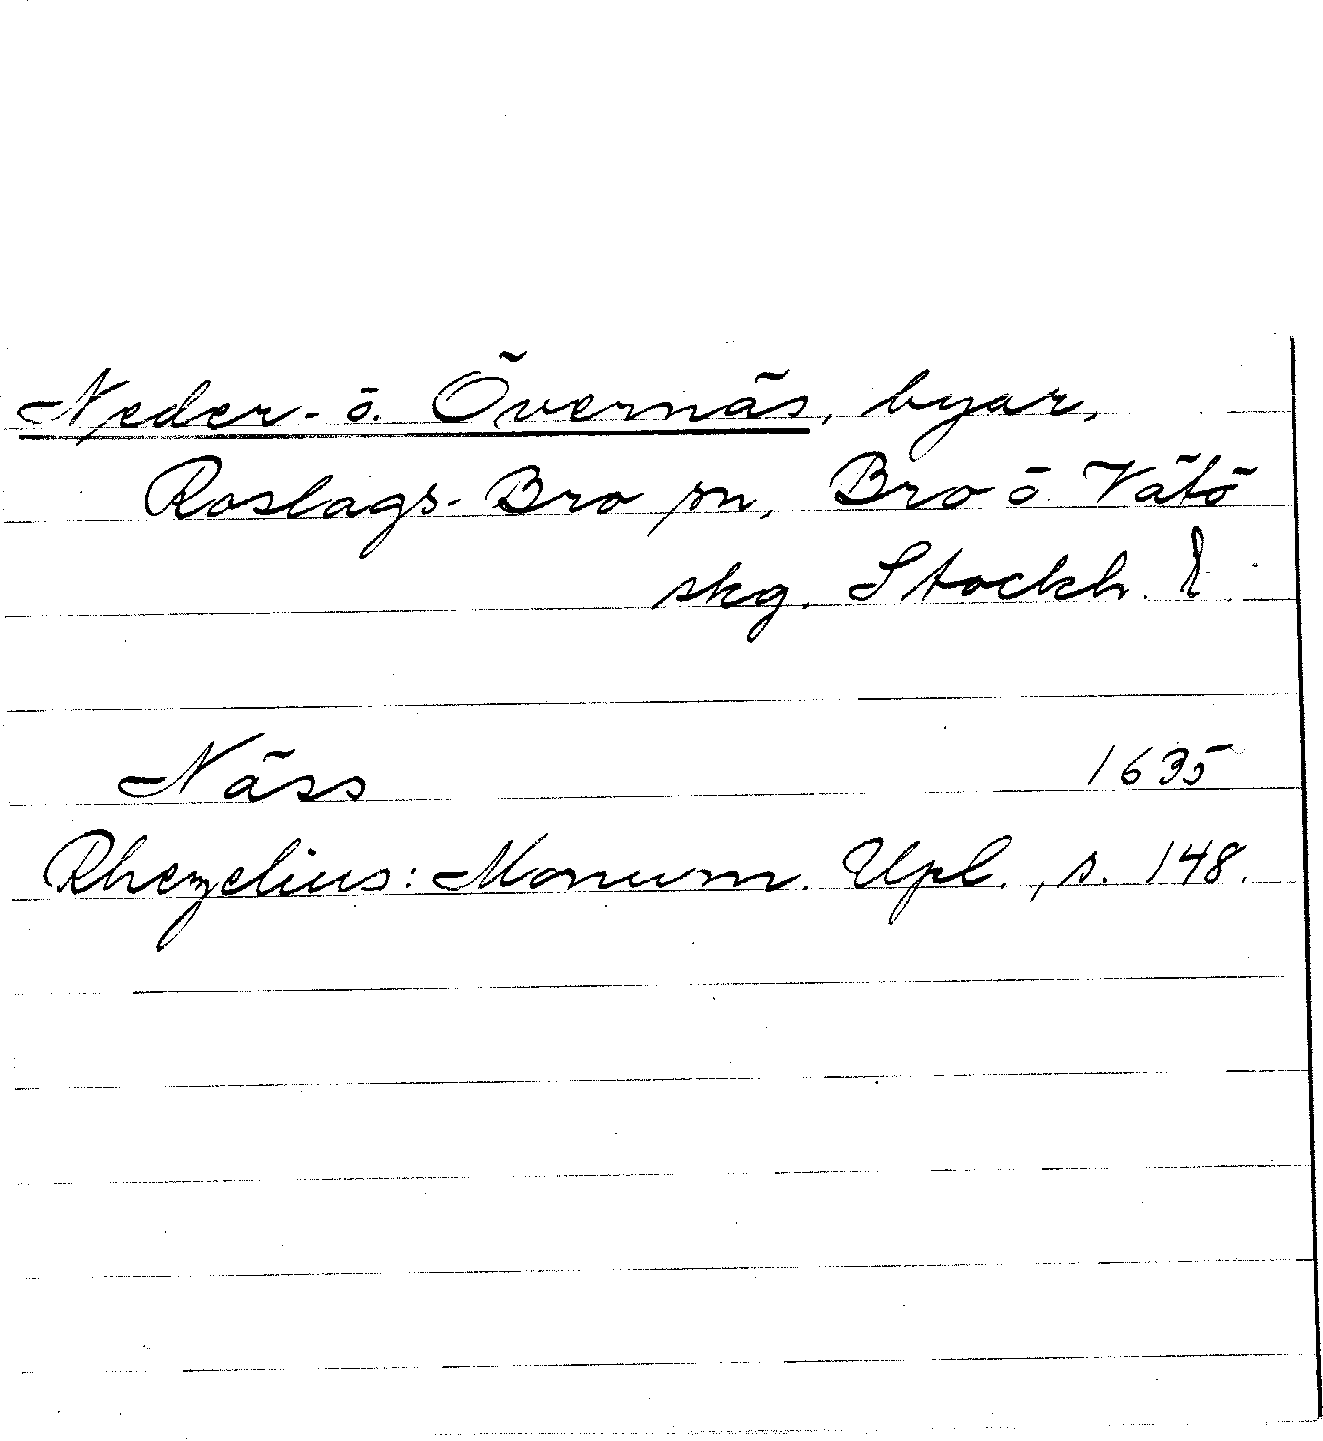 Neder- o. Övernäs, byar,
Roslags-Bro sn, Bro o Vätö
skg. Stockh. l.
Näss 1635
Rhezelius: Monum. Upl., s. 148.